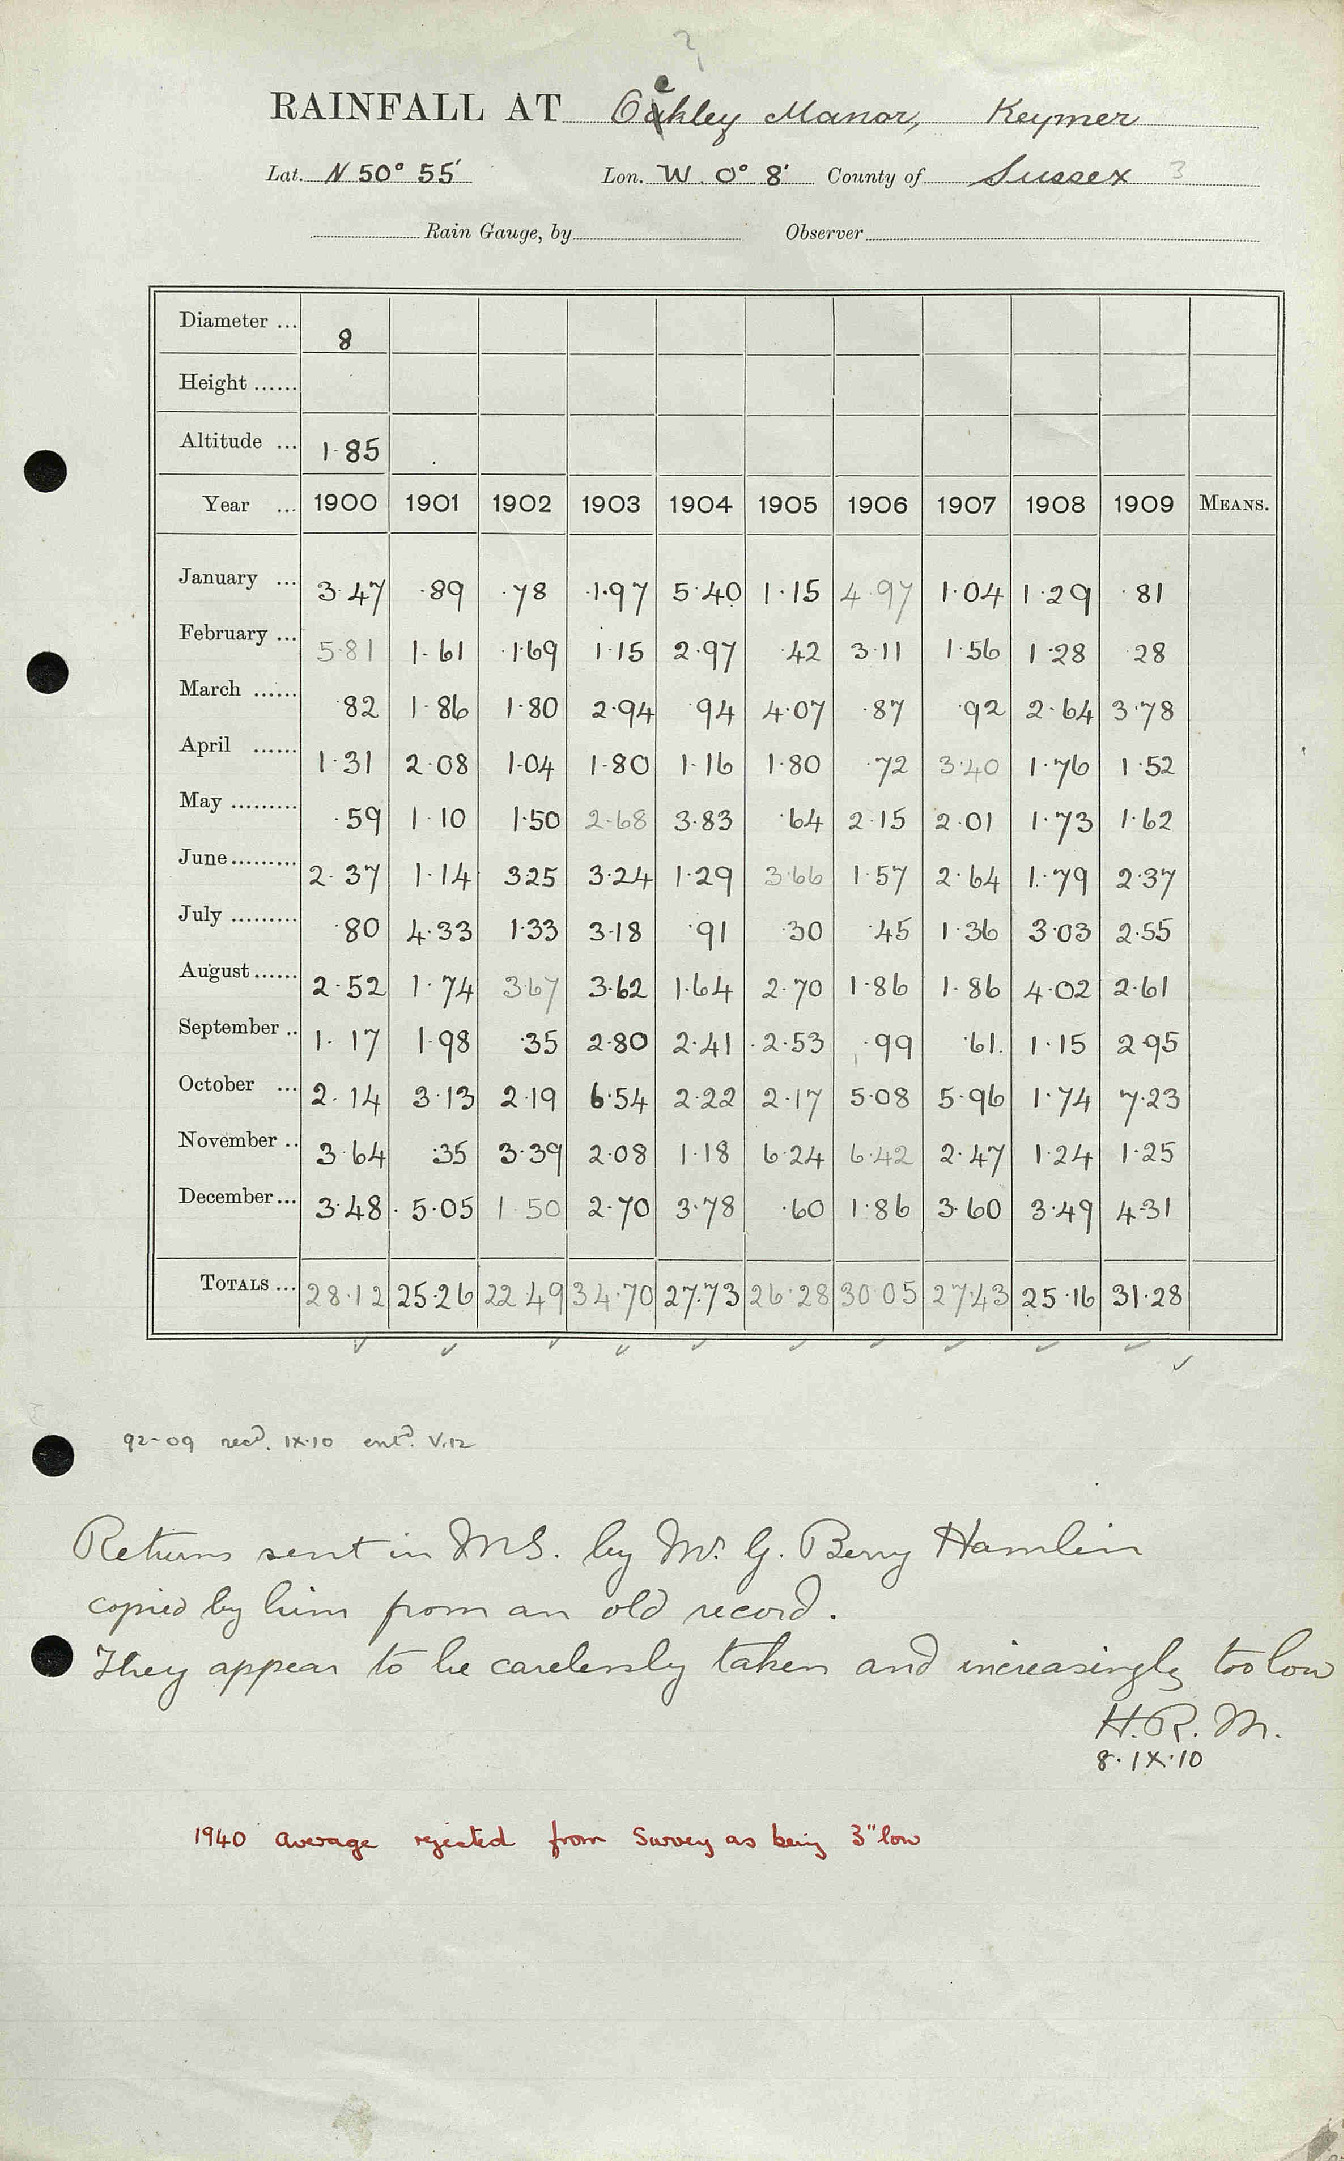 ?
RAINFALL AT Oekley Manor, Keymer
Lat. N 50° 55' Lon. W. 0° 8' County of Sussex 3
Rain Gauge, by Observer
Diameter ... 8
Height ......
Altitude ... 1.85
Year ... 1900 1901 1902 1903 1904 1905 1906 1907 1908 1909 MEANS.
January ... 3.47 .89 .78 1.97 5.40 1.15 4.97 1.04 1.29 .81
February ... 5.81 1.61 1.69 1.15 2.97 .42 3.11 1.56 1.28 .28
March ...... .82 1.86 1.80 2.94 .94 4.07 .87 .92 2.64 3.78
April ...... 1.31 2.08 1.04 1.80 1.16 1.80 .72 3.40 1.76 1.52
May ......... .59 1.10 1.50 2.68 3.83 .64 2.15 2.01 1.73 1.62
June......... 2.37 1.14 325 3.24 1.29 3.66 1.57 2.64 1.79 2.37
July ......... .80 4.33 1.33 3.18 .91 .30 .45 1.36 3.03 2.55
August...... 2.52 1.74 3.67 3.62 1.64 2.70 1.86 1.86 4.02 2.61
September .. 1.17 1.98 .35 2.80 2.41 2.53 .99 .61 1.15 2.95
October ... 2.14 3.13 2.19 6.54 2.22 2.17 5.08 5.96 1.74 7.23
November .. 3.64 .35 3.39 2.08 1.18 6.24 6.42 2.47 1.24 1.25
December... 3.48 5.05 1.50 2.70 3.78 .60 1.86 3.60 3.49 4.31
TOTALS ... 28.12 25.26 22.49 34.70 27.73 26.28 30.05 27.43 25.16 31.28
92-09 recd. IX.10 entd. V.12
Returns sent in MS. by Mr. G. Berry Hamlin
copied by him from an old record.
They appear to be carelessly taken and increasingly too low
H.R.M.
8.IX.10
1940 average rejected from Survey as being 3" low